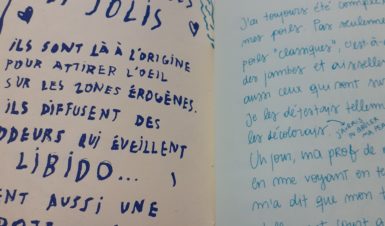 JOLIS
ILS SONT LÀ À L'ORIGINE
POUR ATTIRER L'OEIL
SUR LES ZONES ÉROGÈNES.
ILS DIFFUSENT DES
ODEURS QUI ÉVEILLENT
LIBIDO...
ENT AUSSI UNE
J'ai toujours été compl
mes poils. Pas seulem
poils "classiques", c'est-à-
des jambes et aissell
aussi ceux qui sont su
Je les détestais tellem
les décolorais.
Un jour, ma prof de
en me voyant en te
m'a dit que mon t